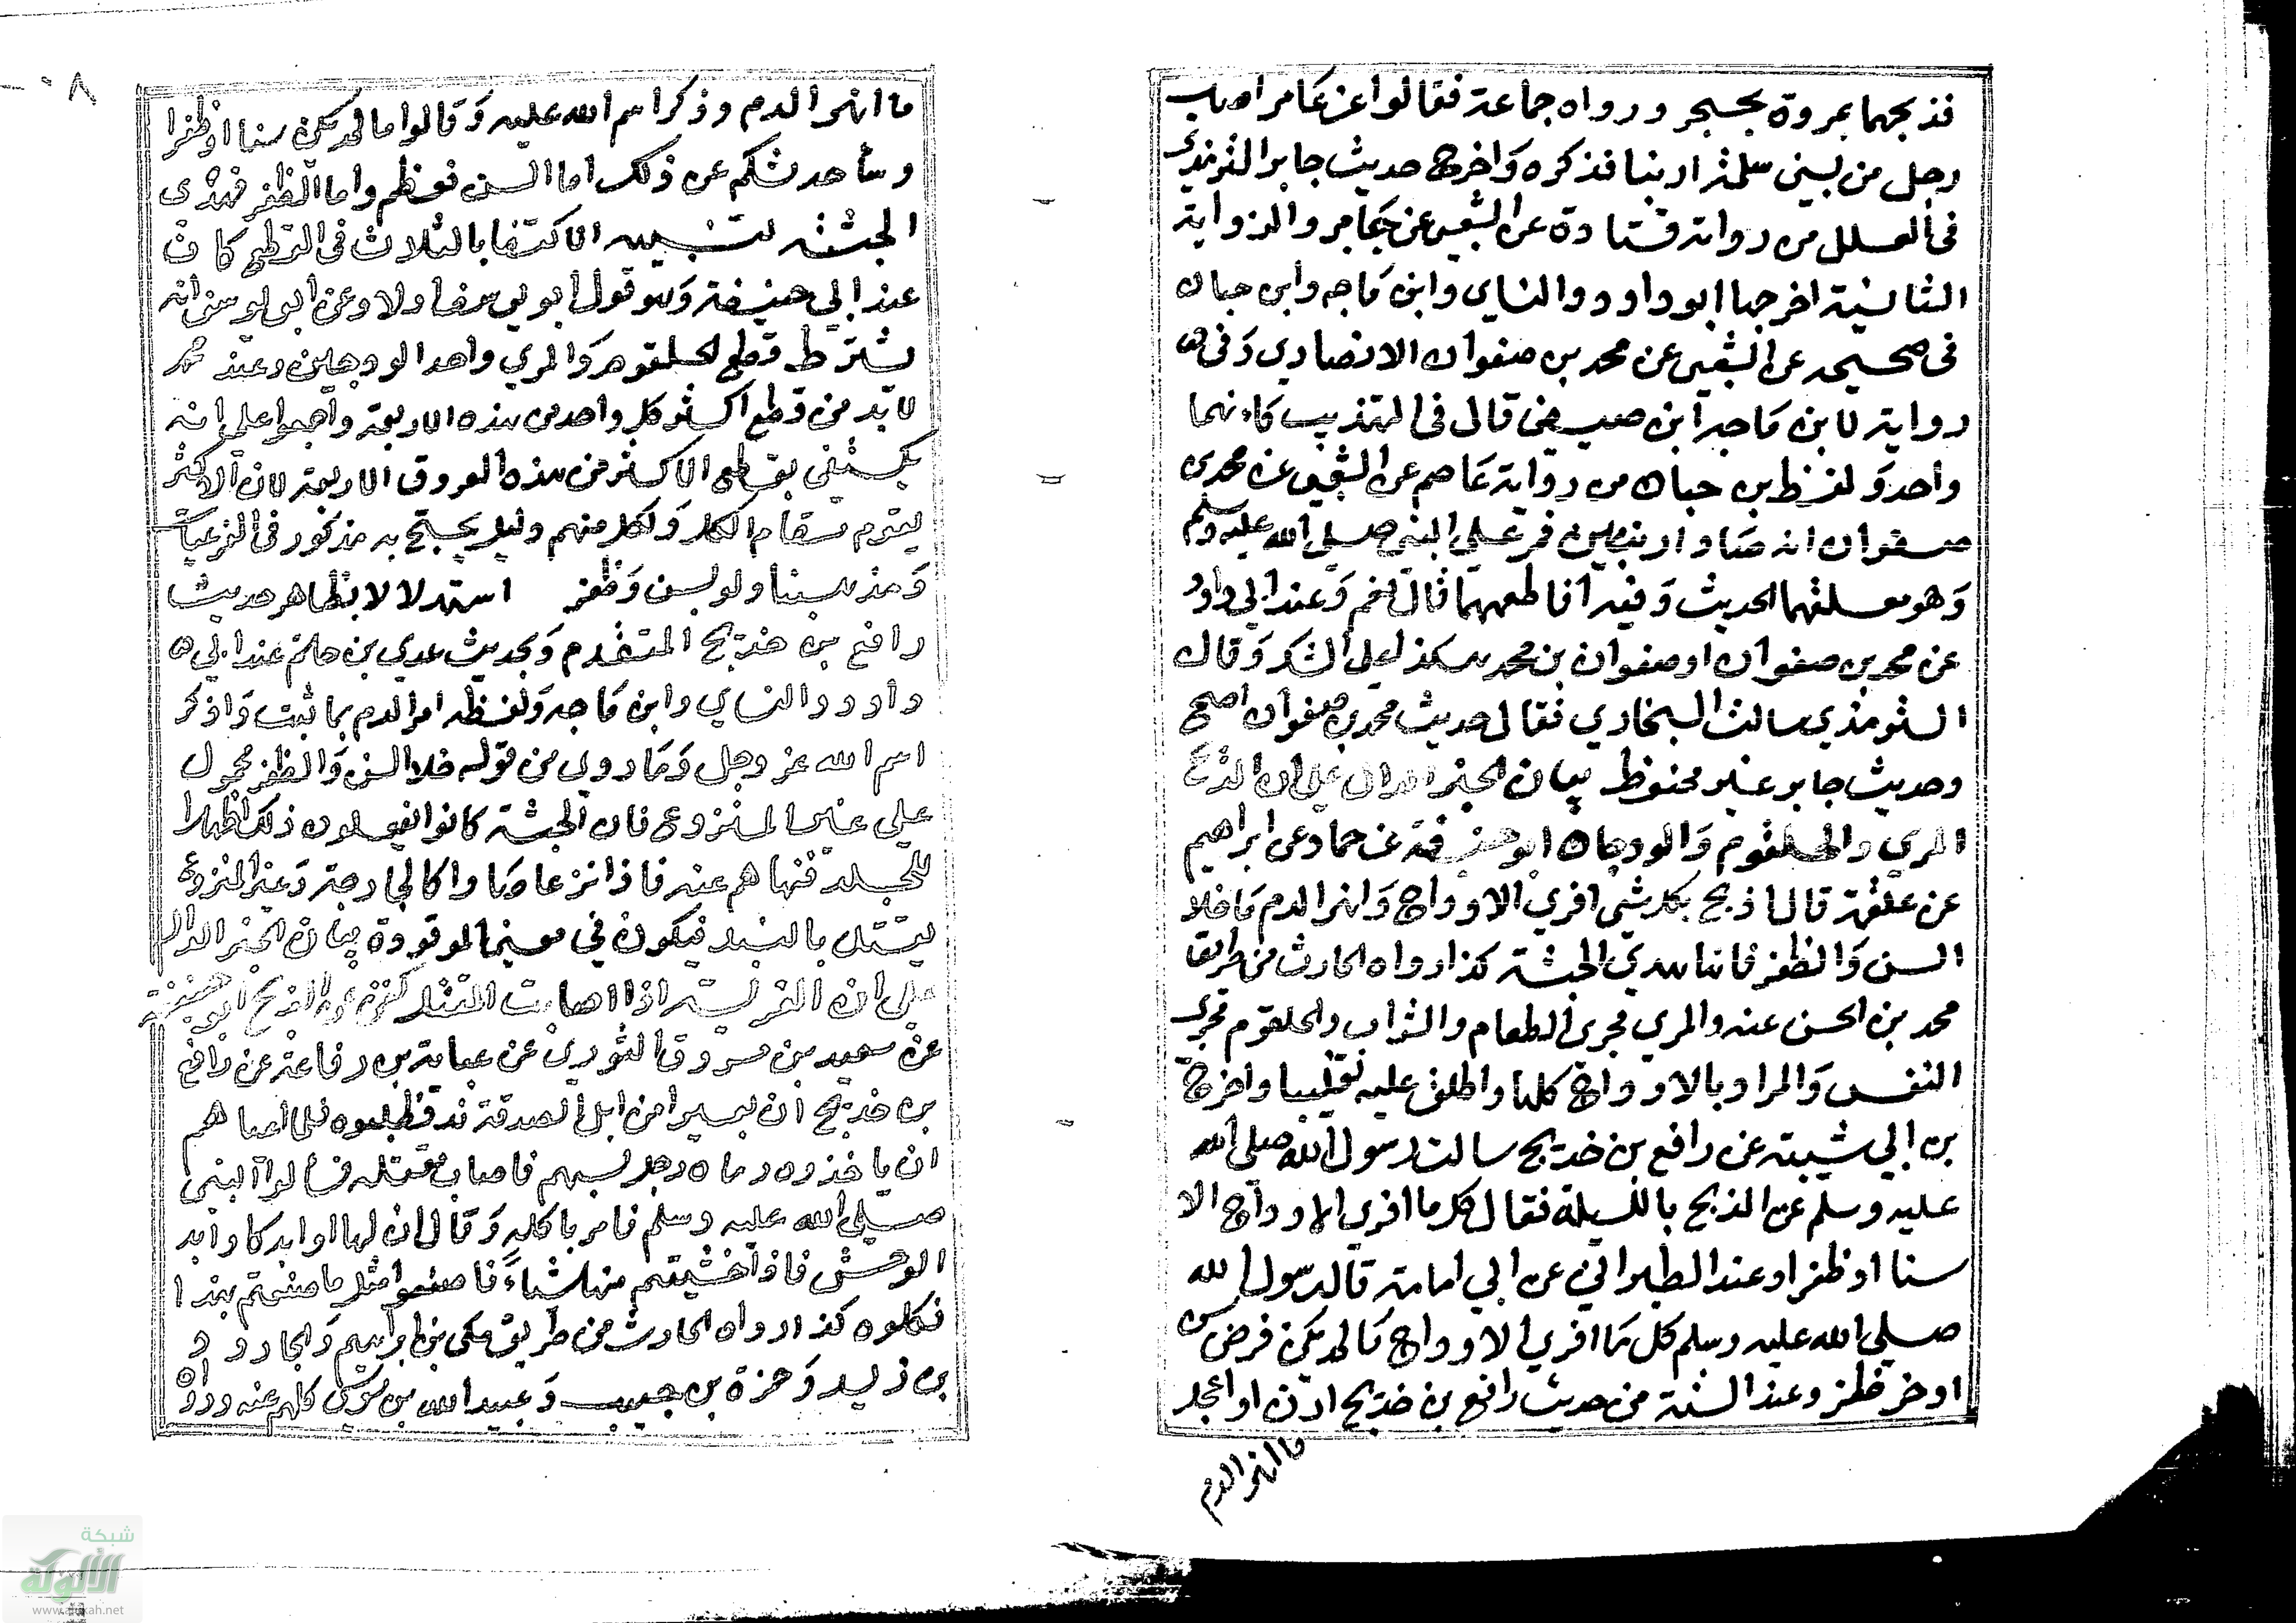 فذبحهما بمروة بحجر ورواه جماعة فقالوا عن عامر اصاب
رجل من بني سلمة ارنبا فذكره وَاخرج حديث جابر الترمذي
في العلل من رواية قتادة عن الشعبي عن جابر والرواية
الثانية اخرجها ابو داود والنساي وابن مَاجه وابن حبان
في صحيحه عن الشعبي عن محمد بن صفوان الانصاري وَفي
رواية لابن مَاجه ابن صيفي قال في التهذيب كانهما
واحد وَلفظ بن حبان من رواية عَاصم عن الشعبي عن محمد بن
صفوان انه صَاد ارنبين فمر علي النبي صلي الله عليه وسلم
وَهو معلقهما الحديث وَفيه افاطعمهما قال نعم وَعند ابي داود
عن محمد بن صفوان او صفوان بن محمد هكذا علي الشك وَقال
الترمذي سالت البخاري فقال حديث محمد بن صفوان اصح
وحديث جابر غير محفوظ بيان الخبر الدال علي ان الذبح
المري والحلقوم وَالودجان ابو حنيفة عن حماد عن ابراهيم
عن علقمة قال اذبح بكل شي افري الاوداج وَانهر الدم مَا خلا
السن وَالظفر فانها مدي الحبشة كذا رواه الحارث من طريق
محمد بن الحسن عنه والمري مجري الطعام والشراب والحلقوم مجري
النفس وَالمراد بالاوداج كلها واطلق عليه تغليبا واخرج
بن ابي شيبة عن رافع بن خديج سالت رسول الله صلي الله
عليه وسلم عن الذبح بالليطة فقال كل ما افري الاوداج الا
سنا او ظفرا وعند الطبراني عن ابي امامة قال رسول الله
صلي الله عليه وسلم كل مَا افري الاوداج مَا لم يكن قرض سن
او حز ظفر وعند الستة من حديث رافع بن خديج ارن او اعجل
ما انهر الدم
ما انهر الدم وذكر اسم الله عليه وَقالوا ما لم يكن سنا او ظفرا
وساحدثكم عن ذلك اما السن فعظم واما الظفر فمدي
الحبشة تنبيه الاكتفا بالثلاث في القطع كاف
عند ابي حنيفة وَهو قول ابو يوسف اولا وعن ابو يوسف انه
يشترط قطع الحلقوم وَالمري واحد الودجين وعند محمد
لابد من قطع اكثر كل واحد من هذه الاربعة واجمعوا علي انه
يكتفي بقطع الاكثر من هذه العروق الاربعة لان الاكثر
يقوم مقام الكل وَلكل منهم دليل يحتج به مذكور في الفرعيات
وَمذهبنا ولو بسن وَظفر استدلالا بظاهر حديث
رافع بن خديج المتقدم وَبحديث عدي بن حاتم عند ابي
داود والنساي وابن مَاجه وَلفظه امر الدم بما شئت وَاذكر
اسم الله عز وجل وَمَا روي من قوله خلا السن وَالظفر محمول
علي غير المنزوع فان الحبشة كانوا يفعلون ذلك اظهارا
للجلد فنهاهم عنه فاذا نزعا صَارا كالحارجة وَغير المنزوع
يقتل بالثقل فيكون في معني الموقوذة بيان الخبر الدال
علي ان الفريسة اذا اصابت المقتل كفي عن الذبح ابو حنيفة
عن سعيد بن مسروق الثوري عن عباية بن رفاعة عن رافع
بن خديج ان بعيرا من ابل الصدقة ند فطلبوه فلما اعياهم
ان ياخذوه رماه رجل بسهم فاصاب فقتله فسالوا النبي
صلي الله عليه وسلم فامر باكله وَقال ان لها اوابد كاوابد
الوحش فاذا خشيتم منها شيا فاصنعوا مثل ما صنعتم بهذا
فكلوه كذا رواه الحارث من طريق مكي بن ابراهيم وَالجارود
بن زيد وَحمزة بن حبيب وَعبيد الله بن موسي كلهم عنه ورواه
شبكة
الألوكة
www.alukah.net